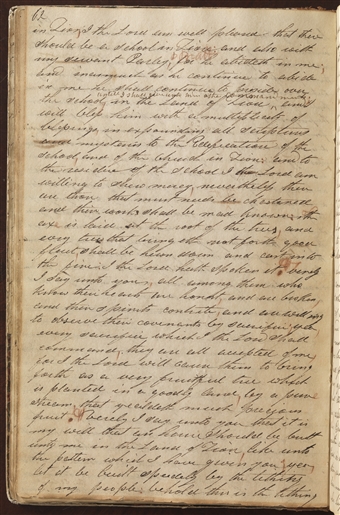 62
in Zion I the Lord am well pleased that there
should be a school in Zion and also with
my servant Parley for he abideth in me
and inasmuch as he continue to abide
in me he shall continue to preside over
the school in the Land of Zion and I
will bless him with a multiplicity of
blessings in expounding all scriptures
and mysteries to the edification of the
school and of the church in Zion and to
the residue of the school I the Lord am
willing to shew mercy nevertheless there
are those that must needs be chastened
and their works shall be made known the
axe is laid at the root of the trees and
every tree that bringeth not forth good
fruit shall be hewn down and cast into
the fire I the Lord hath spoken it verily
I say unto you all among them who
know their hearts are honest and are broken
and their spirits contrite and are willing
to observe their covenants by sacrifice yea
every sacrifice which I the Lord shall
command they are all accepted of me
for I the Lord will cause them to bring
forth as a very fruitful tree which
is planted in a goodly land by a pure
stream that yieldeth much precious
fruit Verily I say unto you that it is
my will that an house should be built
unto me in the Land of Zion like unto
the pattern which I have given you yea
let it be built speedily by the tithing
of my people behold this is the tithing